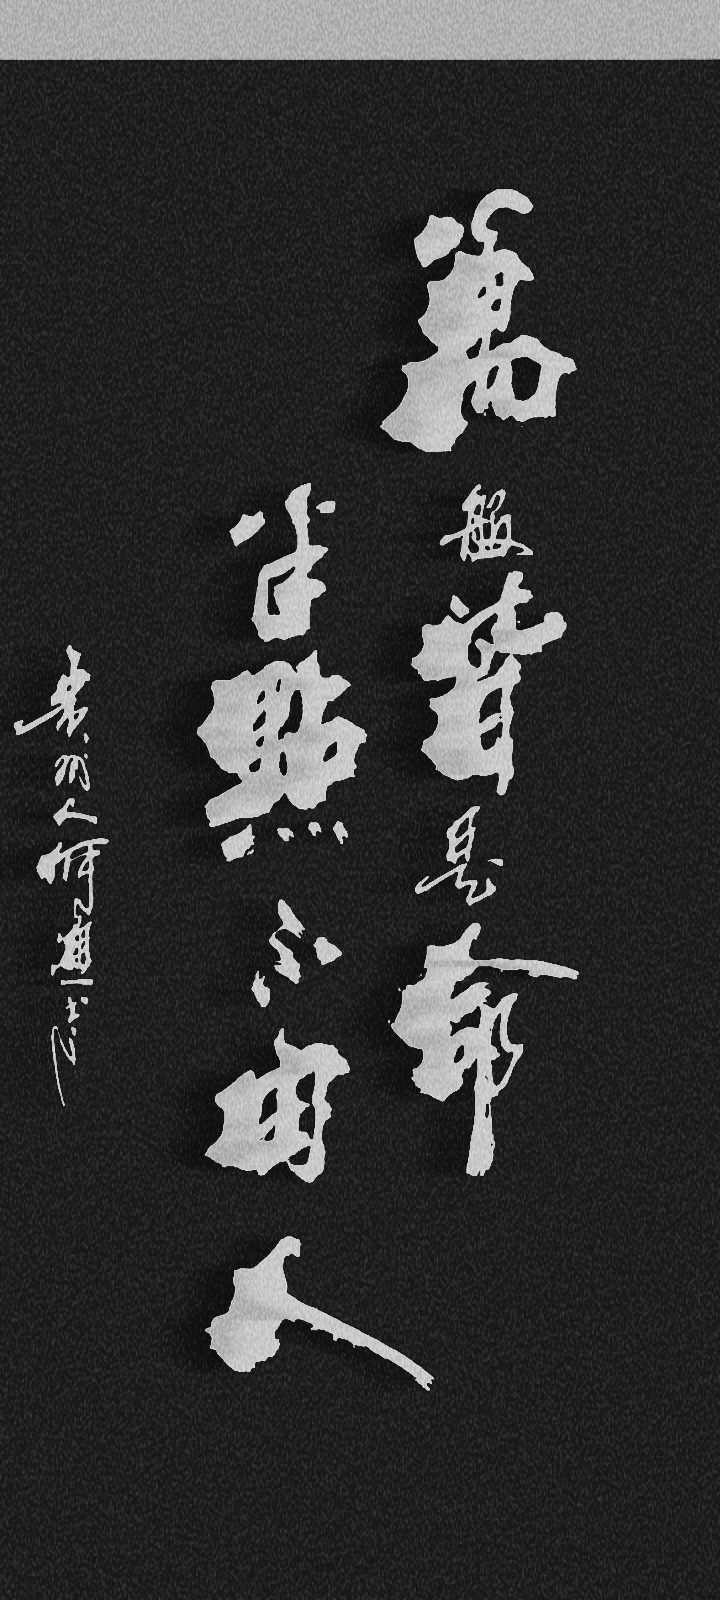 萬般皆是命
半點不由人
州人何一书